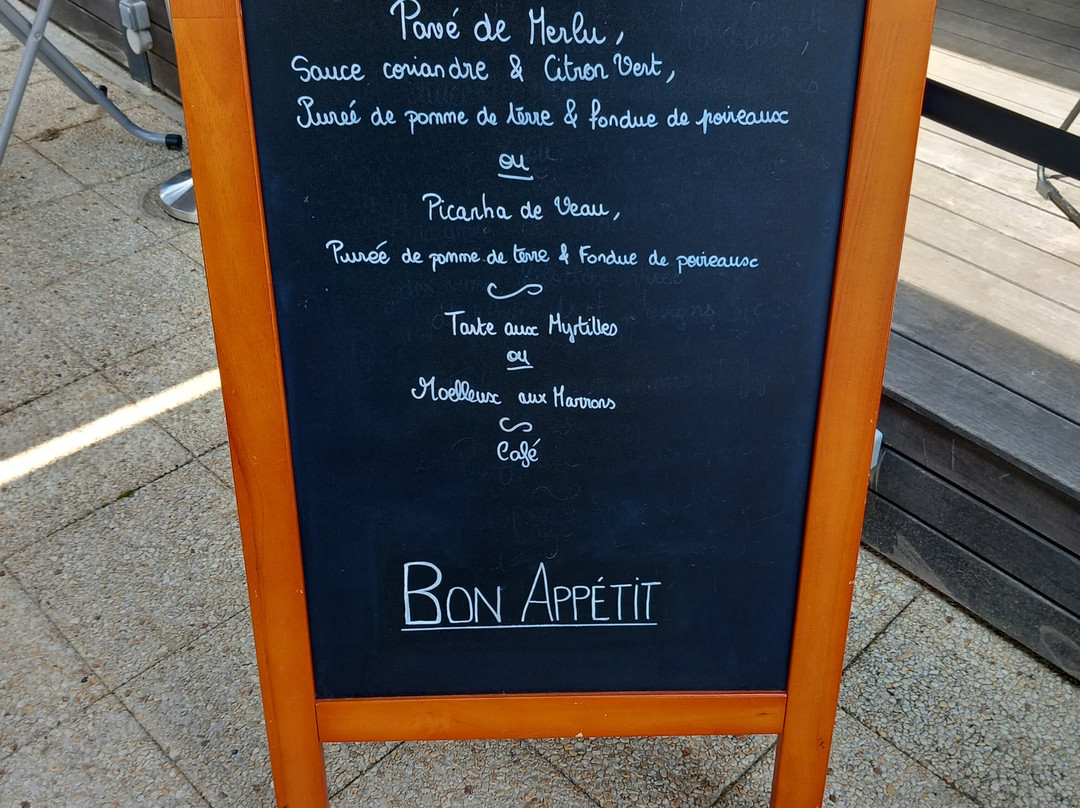 Pavé de Merlu,
Sauce coriandre & Citron Vert,
Pureé de pomme de terre & fondue de poireaux
ou
Picanha de Veau,
Purée de pomme de terre & Fondue de poireaux
Tarte aux Myrtilles
ou
Moelleux aux Marrons
Café
BON APPÉTIT